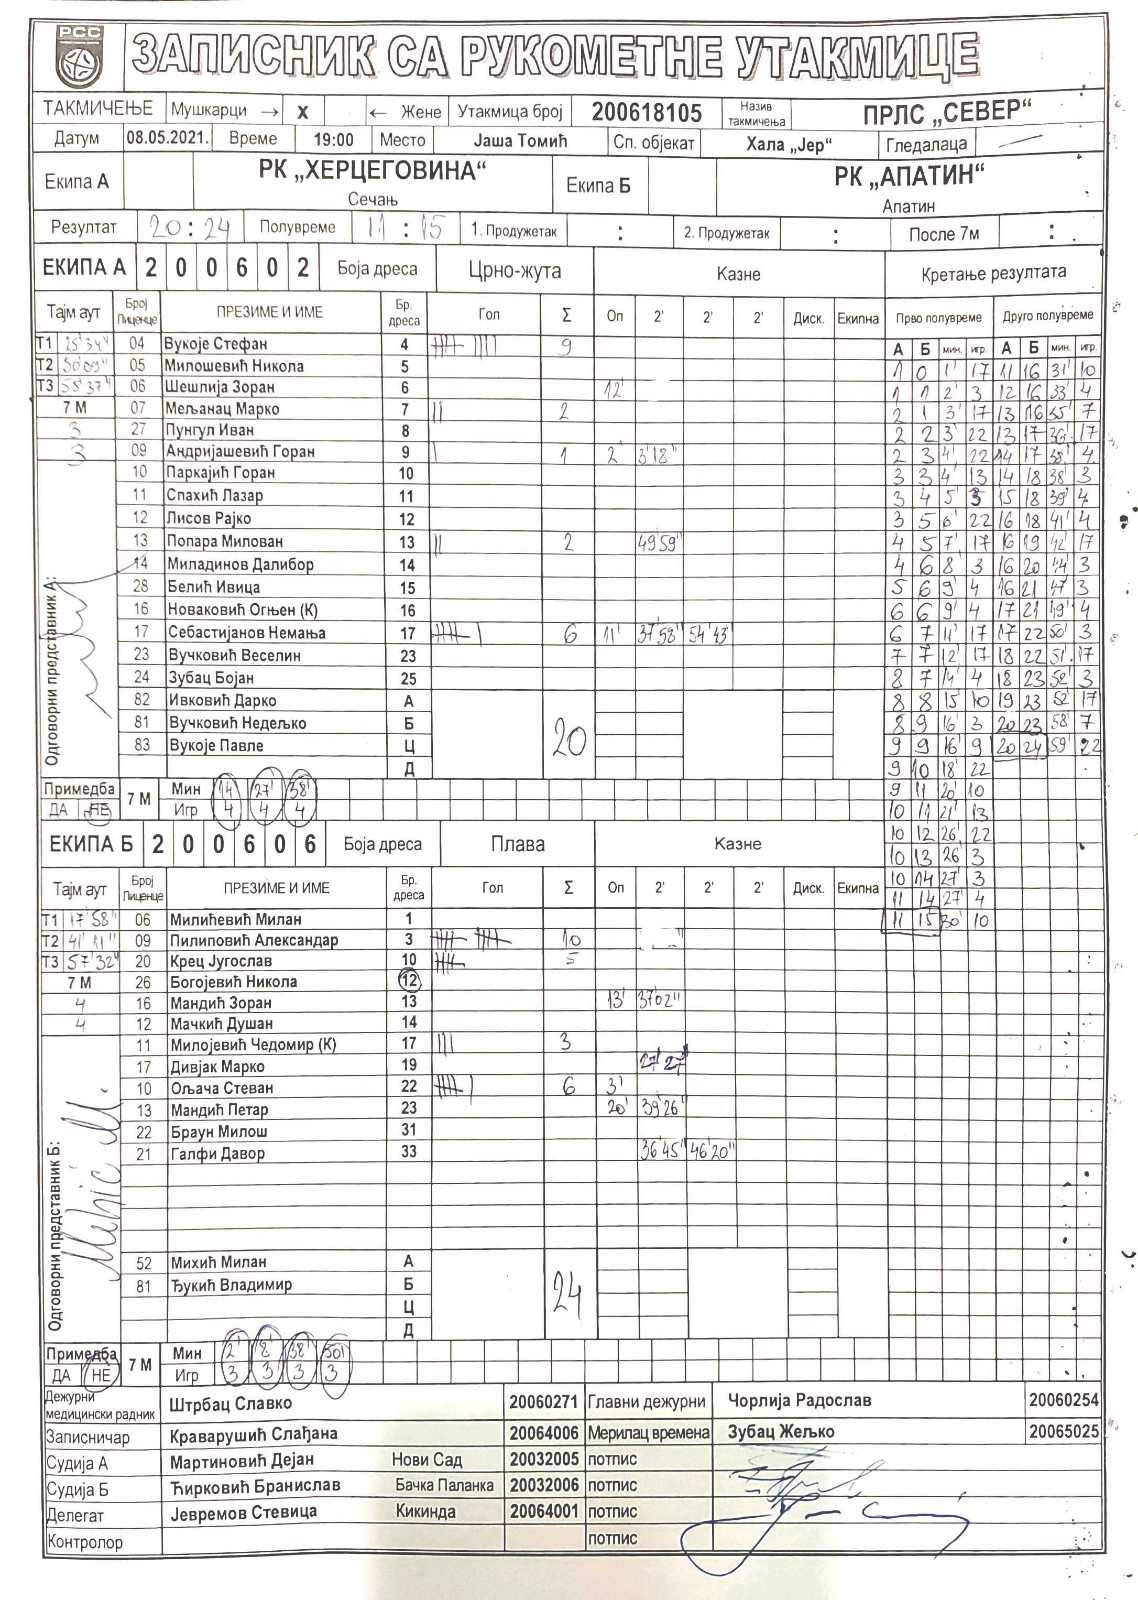 РСС
ЗАПИСНИК СА РУКОМЕТНЕ УТАКМИЦЕ
ТАКМИЧЕЊЕ Мушкарци → X ← Жене Утакмица број 200618105 Назив такмичења ПРЛС „СЕВЕР“
Датум 08.05.2021. Време 19:00 Место Јаша Томић Сп. објекат Хала „Јер“ Гледалаца
Екипа А РК „ХЕРЦЕГОВИНА“ Сечањ Екипа Б РК „АПАТИН“ Апатин
Резултат 20 : 24 Полувреме 11 : 15 1. Продужетак : 2. Продужетак : После 7м :
ЕКИПА А 2 0 0 6 0 2 Боја дреса Црно-жута Казне Кретање резултата
Тајм аут Број Лиценце ПРЕЗИМЕ И ИМЕ Бр. дреса Гол Σ Оп 2' 2' 2' Диск. Екипна Прво полувреме Друго полувреме
А Б мин. игр. А Б мин. игр.
Т1 25'34" 04 Вукоје Стефан 4 9
Т2 50'09" 05 Милошевић Никола 5
Т3 55'37" 06 Шешлија Зоран 6 12'
7 М 07 Мељанац Марко 7 2
3 27 Пунгул Иван 8
3 09 Андријашевић Горан 9 1 2' 3'18"
10 Паркајић Горан 10
11 Спахић Лазар 11
12 Лисов Рајко 12
13 Попара Милован 13 2 49'59"
14 Миладинов Далибор 14
28 Белић Ивица 15
16 Новаковић Огњен (К) 16
17 Себастијанов Немања 17 6 11' 37'58" 54'43"
23 Вучковић Веселин 23
24 Зубац Бојан 25
82 Ивковић Дарко А
81 Вучковић Недељко Б 20
83 Вукоје Павле Ц
Д
Одговорни представник А:
1 0 1' 17 11 16 31' 10
1 1 2' 3 12 16 33' 4
2 1 3' 17 13 16 35' 7
2 2 3' 22 13 17 36' 17
2 3 4' 22 14 17 38' 4
3 3 4' 13 14 18 38' 3
3 4 5' 3 15 18 39' 4
3 5 6' 22 16 18 41' 4
4 5 7' 17 16 19 42' 17
4 6 8' 3 16 20 44' 3
5 6 9' 4 16 21 47' 3
6 6 9' 4 17 21 49' 4
6 7 11' 17 17 22 50' 3
7 7 12' 17 18 22 51' 17
8 7 14' 4 18 23 52' 3
8 8 15' 10 19 23 52' 17
8 9 16' 3 20 23 58' 7
9 9 16' 9 20 24 59' 22
9 10 18' 22
9 11 20' 10
10 11 21' 13
10 12 26' 22
10 13 26' 3
10 14 27' 3
11 14 27' 4
11 15 30' 10
Примедба ДА НЕ 7 М Мин 14' 27' 38'
Игр 4 4 4
ЕКИПА Б 2 0 0 6 0 6 Боја дреса Плава Казне
Тајм аут Број Лиценце ПРЕЗИМЕ И ИМЕ Бр. дреса Гол Σ Оп 2' 2' 2' Диск. Екипна
Т1 17'58" 06 Милићевић Милан 1
Т2 41'11" 09 Пилиповић Александар 3 10
Т3 57'32" 20 Крец Југослав 10 5
7 М 26 Богојевић Никола 12
4 16 Мандић Зоран 13 13' 37'02"
4 12 Мачкић Душан 14
11 Милојевић Чедомир (К) 17 3
17 Дивјак Марко 19 27'27"
10 Ољача Стеван 22 6 3'
13 Мандић Петар 23 20' 39'26"
22 Браун Милош 31
21 Галфи Давор 33 36'45" 46'20"
52 Михић Милан А
81 Ђукић Владимир Б 24
Ц
Д
Одговорни представник Б:
Примедба ДА НЕ 7 М Мин 2' 8' 38' 50'
Игр 3 3 3 3
Дежурни медицински радник Штрбац Славко 20060271 Главни дежурни Чорлија Радослав 20060254
Записничар Краварушић Слађана 20064006 Мерилац времена Зубац Жељко 20065025
Судија А Мартиновић Дејан Нови Сад 20032005 потпис
Судија Б Ћирковић Бранислав Бачка Паланка 20032006 потпис
Делегат Јевремов Стевица Кикинда 20064001 потпис
Контролор потпис